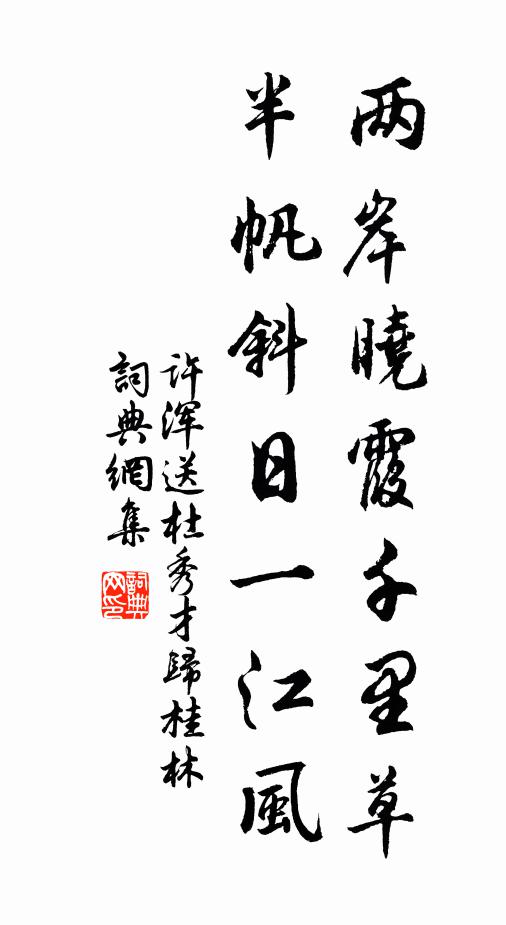 两岸曉霞千里草
半帆斜日一江風
许渾送杜秀才歸桂林
詞典網集
詞典网印